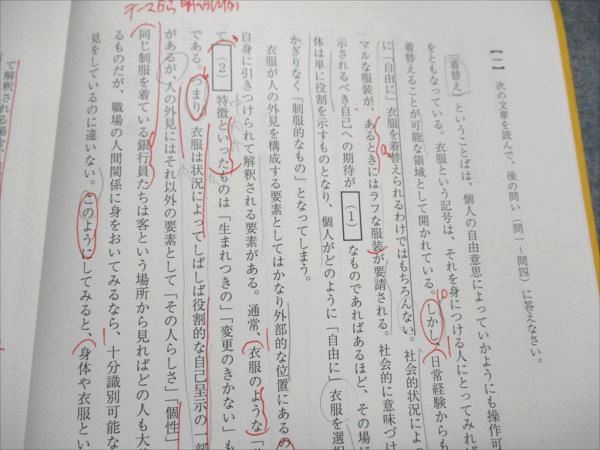 【一】 次の文章を読んで、後の問い（問一～問四）に答えなさい。
「着替え」ということばは、個人の自由意思によっていかようにも操作可
をともなっている。衣服という記号は、それを身につける人にとってみれば
着替えることが可能な領域として開かれている。しかし、日常経験からも
に「自由に」衣服を着替えられるわけではもちろんない。社会的状況によ
マルな服装が、あるときにはラフな服装が要請される。社会的に意味づけ
示されるべき自己への期待が（1）なものであればあるほど、その場
体は単に役割を示すものとなり、個人がどのように「自由に」衣服を選
かぎりなく「制服的なもの」となってしまう。
衣服が人の外見を構成する要素としてはかなり外部的な位置にあるの
自身に引きつけられて解釈される要素がある。通常、衣服のような「
て（2）特徴といったものは「生まれつきの」「変更のきかない」も
である。つまり、衣服は状況によってしばしば役割的な自己呈示の一部
があるが、人の外見にはそれ以外の要素として「その人らしさ」「個性」
同じ制服を着ている銀行員たちは客という場所から見ればどの人も大
るものだが、職場の人間関係に身をおいてみるなら、十分識別可能な
見をしているのに違いない。このようにしてみると、身体や衣服とい
て解釈される場合、